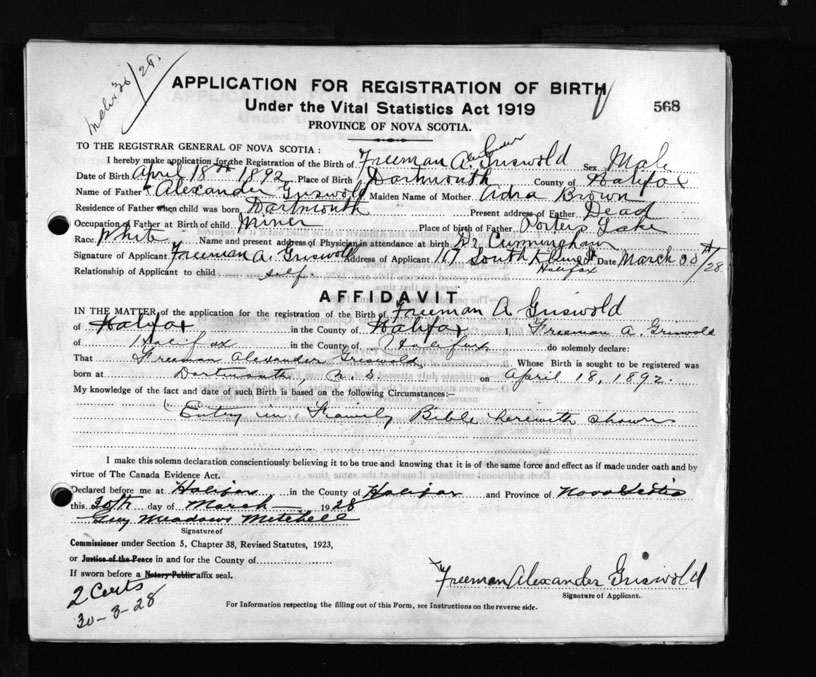 28.
APPLICATION FOR REGISTRATION OF BIRTH
Under the Vital Statistics Act 1919
568
PROVINCE OF NOVA SCOTIA.
TO THE REGISTRAR GENERAL OF NOVA SCOTIA :
I hereby make application for the Registration of the Birth of Freeman Alexander Griswold Sex Male
Date of Birth April 18th 1892 Place of Birth Dartmouth County of Halifax
Name of Father Alexander Griswold Maiden Name of Mother Adra Brown
Residence of Father when child was born Dartmouth Present address of Father Dead
Occupation of Father at Birth of child Miner Place of birth of Father Porters Lake
Race White Name and present address of Physician in attendance at birth Dr Cunningham
Signature of Applicant Freeman A. Griswold Address of Applicant 167 South Halifax Date March 30th/28
Relationship of Applicant to child Self.
AFFIDAVIT
IN THE MATTER of the application for the registration of the Birth of Freeman A. Griswold
of Halifax in the County of Halifax I, Freeman A. Griswold
of Halifax in the County of Halifax do solemnly declare:
That Freeman Alexander Griswold, Whose Birth is sought to be registered was
born at Dartmouth, N. S. on April 18, 1892.
My knowledge of the fact and date of such Birth is based on the following Circumstances:—
Entry in Family Bible herewith shown
I make this solemn declaration conscientiously believing it to be true and knowing that it is of the same force and effect as if made under oath and by
virtue of The Canada Evidence Act.
Declared before me at Halifax in the County of Halifax and Province of Nova Scotia
this 30th day of March 1928
Guy Meadows Mitchell
Signature of
Commissioner under Section 5, Chapter 38, Revised Statutes, 1923,
or Justice of the Peace in and for the County of
If sworn before a Notary Public affix seal.
Freeman Alexander Griswold
Signature of Applicant.
2 Certs
30-3-28
For Information respecting the filling out of this Form, see Instructions on the reverse side.